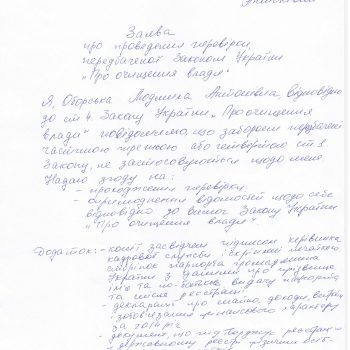 Заява
про проведення перевірки,
передбаченої Законом України
„Про очищення влади"
Я, Оборська Людмила Антонівна, відповідно
до ст 4 Закону України „Про очищення
влади" повідомляю, що заборони передбачені
частиною третьою або четвертою ст 1
Закону, не застосовуються щодо мене
Надаю згоду на:
- проходження перевірки
- оприлюднення відомостей щодо себе
відповідно до вимог Закону України
„Про очищення влади"
Додаток: - копії засвідчені підписом керівника
кадрової служби і скріплені печаткою,
сторінок паспорта громадянина
України з даними про прізвище,
ім'я та по-батькові, видачу паспорта
та місце реєстрації
- декларації про майно, доходи, витрати
і зобов'язання фінансового характеру
за 2014 рік
- документа, що підтверджує реєстрацію
у державному реєстрі фізичних осіб-